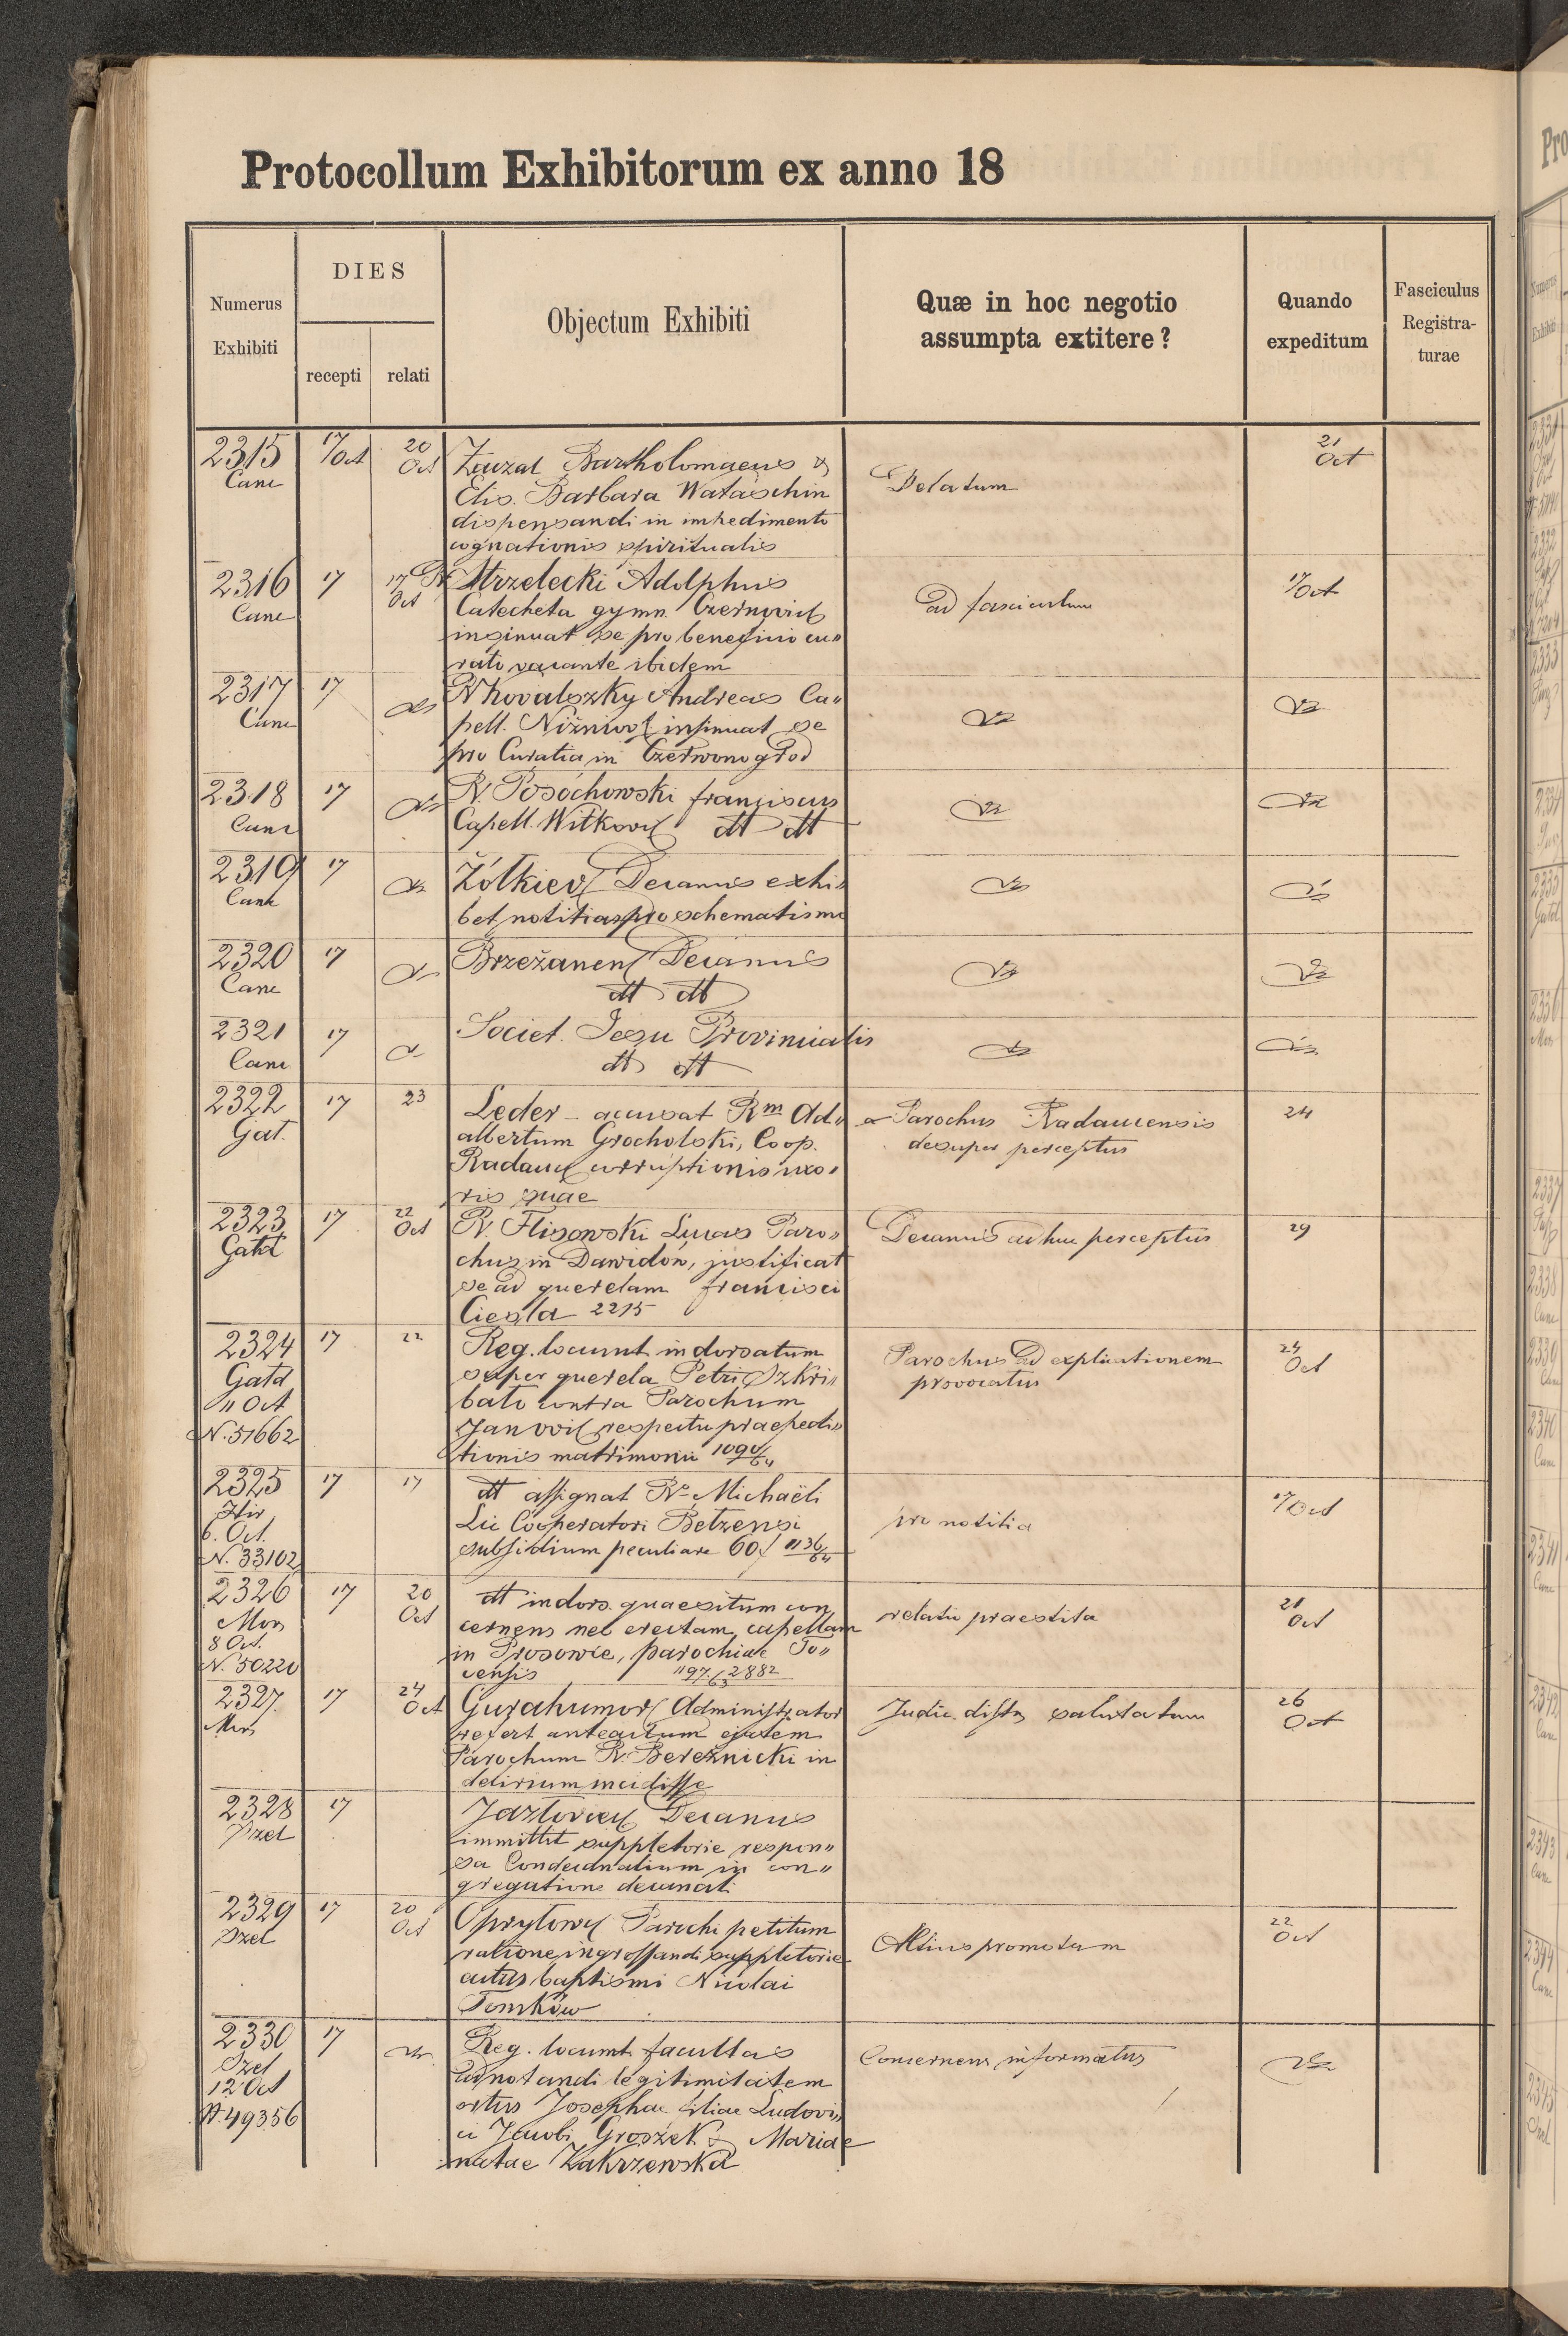 Protocollum Exhibitorum ex anno 18
Numerus Exhibiti
DIES
recepti
relati
Objectum Exhibiti
Quæ in hoc negotio
assumpta extitere?
Quando
expeditum
Fasciculus
Registra-
turae
2315
Canc
17 Oct
20
Oct
Bartholomaeus &
Elis. Barbara Wataschin
dispensandi in impedimento
cognationis spiritualis
Delatum
21
Oct
2316
Canc
17
17
Oct
R. Strzelecki Adolphus
Catecheta gymn.
insinuat se pro beneficio cu„
rato vacante ibidem
ad fasciculum
17 Oct
2317
Canc
17
Andreas Ca„
pell. insinuat se
pro Curatia in Czerwonogrod
2318
Canc
17
R. Posochowski Franciscus
Capell. dtt dtt
2319
Canc
17
Decanus exhi„
bet notitias pro schematismo
2320
Canc
17
Decanus
dtt dtt
2321
Canc
17
Societ. Jesu Provincialis
dtt dtt
2322
Gat.
17
23
Leder - accusat Rm Ad„
albertum Grocholski, Coop.
corruptionis uxo„
ris suae
Parochus Radaucensis
desuper perceptus
24
2323
Gatd
17
22
Oct
R. Flisowski Lucas Paro„
chus in Dawidow, justificat
se ad querelam Francisci
Ciesla 2215
Decanus ad huc perceptus
29
2324
Gatd
11 Oct
N. 51662
17
22
Reg. locumt indorsatum
super querela Petri Szkri„
bato contra Parochum
respectu praepedi„
tionis matrimonii 1090/64
Parochus ad explicationem
provocatus
24
Oct
2325
6. Oct.
N. 33102
17
17
dtt assignat Michaëli
Cooperatori Belzensi
subsidium peculiare 60 f 1136/64
pro notitia
17 Oct
2326
Mos
8 Oct.
N. 50220
17
20
Oct
dtt indors. quaesitum con
cernens neo erectam capellam
in Prosowce, parochiae To„
censis
2882
relatio praestita
21
Oct
2327
Mos
17
24
Oct
Administrator
refert anteactum ejatem
Parochum R. Bereznicki in
delirium incidisse
Judic. distr. salutatum
26
Oct
2328
Szel
17
Decanus
immittit suppletorie respon„
sa Condecanalium in con„
gregatione decanali
2329
Szel
17
20
Oct
Parochi petitum
ratione ingrossandi suppletorie
actus baptismi Nicolai
Tomków
Altius promotum
22
Oct
2330
Szel
12 Oct
N. 49356
17
Reg. locumt. facultas
adnotandi legitimitatem
ortus Josephae filiae Ludovi„
ci Jacobi Groszek & Mariae
natae Zakrzewska
Concernens informatus